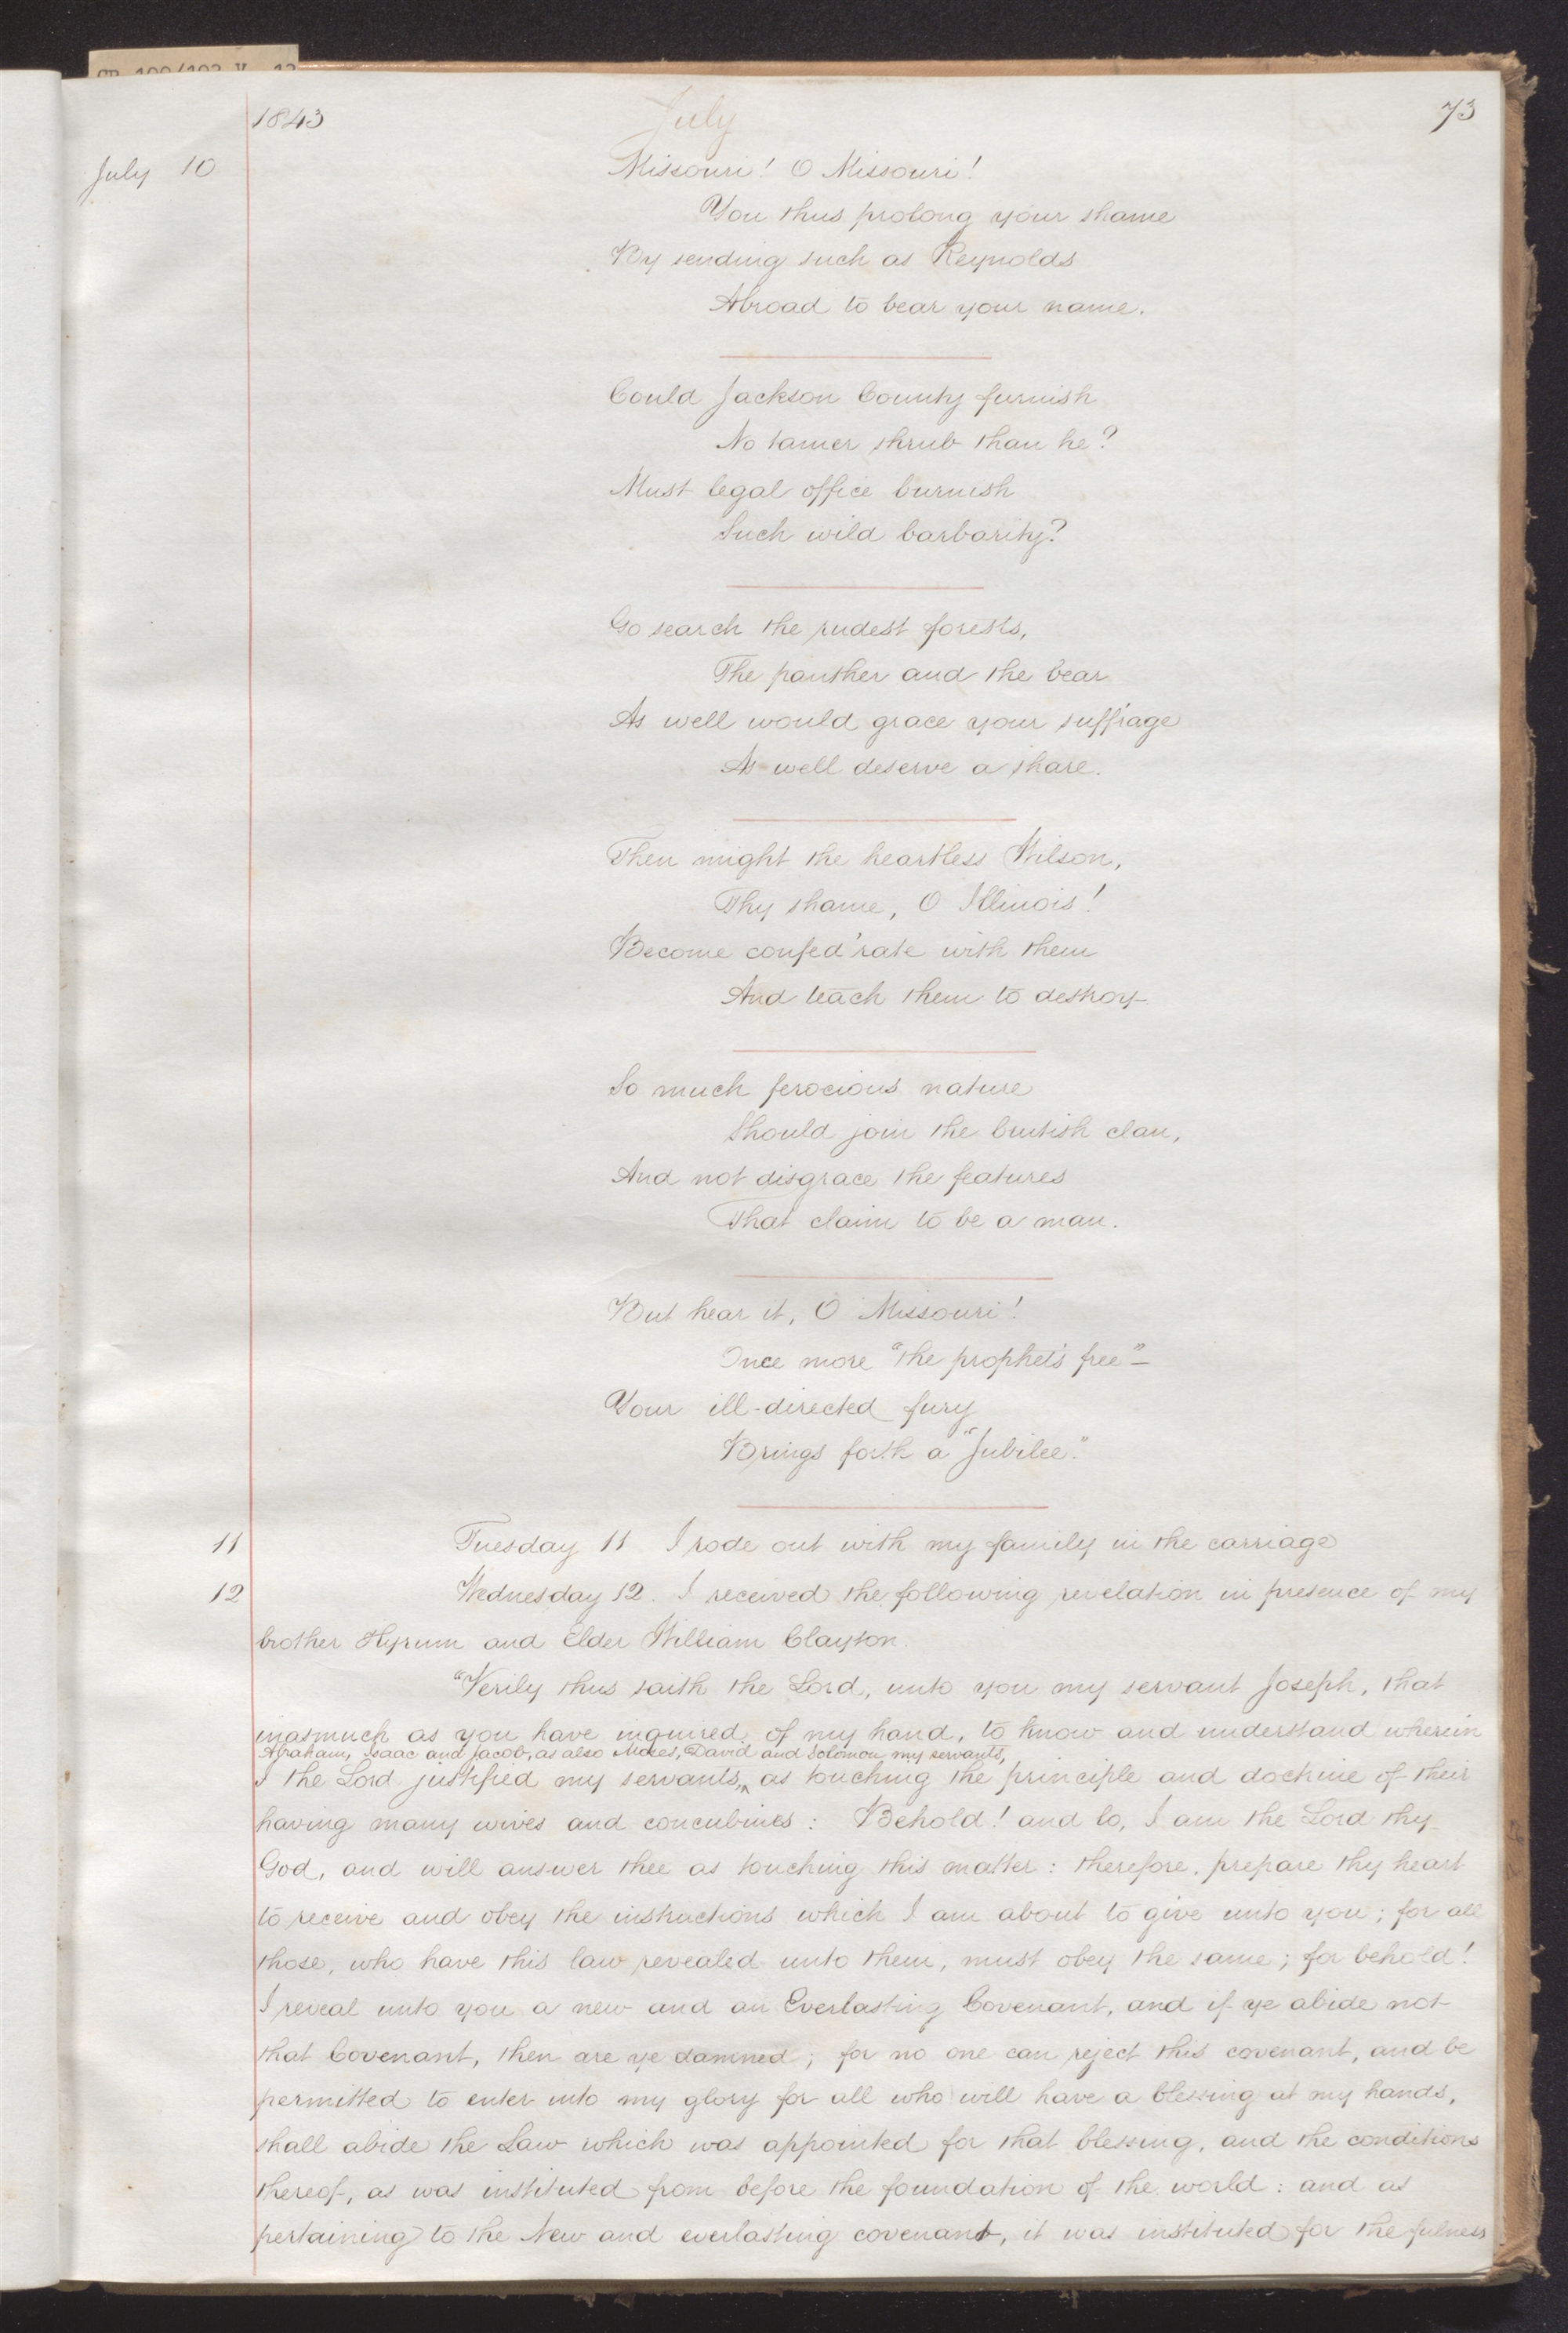 1843 July 73
July 10 Missouri! O Missouri!
You thus prolong your shame
By sending such as Reynolds
Abroad to bear your name.
Could Jackson County furnish
No tamer shrub than he?
Must legal office burnish
Such wild barbarity?
Go search the rudest forests,
The panther and the bear
As well would grace your suffrage
As well deserve a share.
Then might the heartless Wilson,
Thy shame, O Illinois!
Become confed'rate with them
And teach them to destroy
So much ferocious nature
Should join the brutish clan,
And not disgrace the features
That claim to be a man.
But hear it, O Missouri!
Once more "the prophet's free"—
Your ill-directed fury
Brings forth a "Jubilee."
11 Tuesday 11 I rode out with my family in the carriage
12 Wednesday 12. I received the following revelation in presence of my
brother Hyrum and Elder William Clayton.
"Verily thus saith the Lord, unto you my servant Joseph, that
inasmuch as you have inquired of my hand, to know and understand wherein
Abraham, Isaac and Jacob, as also Moses, David and Solomon my servants,
I the Lord justified my servants,^ as touching the principle and doctrine of their
having many wives and concubines: Behold! and lo, I am the Lord thy
God, and will answer thee as touching this matter: therefore, prepare thy heart
to receive and obey the instructions which I am about to give unto you; for all
those, who have this law revealed unto them, must obey the same; for behold!
I reveal unto you a new and an Everlasting Covenant, and if ye abide not
that Covenant, then are ye damned; for no one can reject this covenant, and be
permitted to enter into my glory for all who will have a blessing at my hands,
shall abide the Law which was appointed for that blessing, and the conditions
thereof, as was instituted from before the foundation of the world: and as
pertaining to the New and everlasting covenant, it was instituted for the fulness